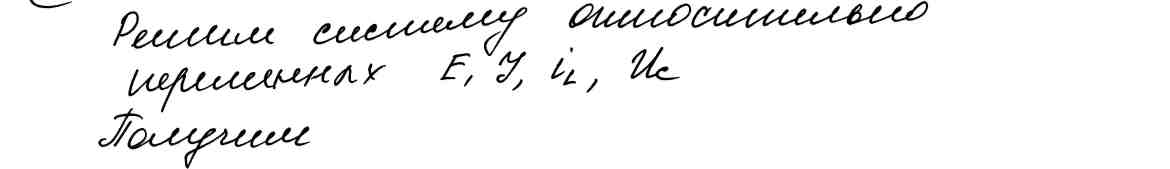 Решим систему относительно
переменных E, J, i_L, U_c
Получим